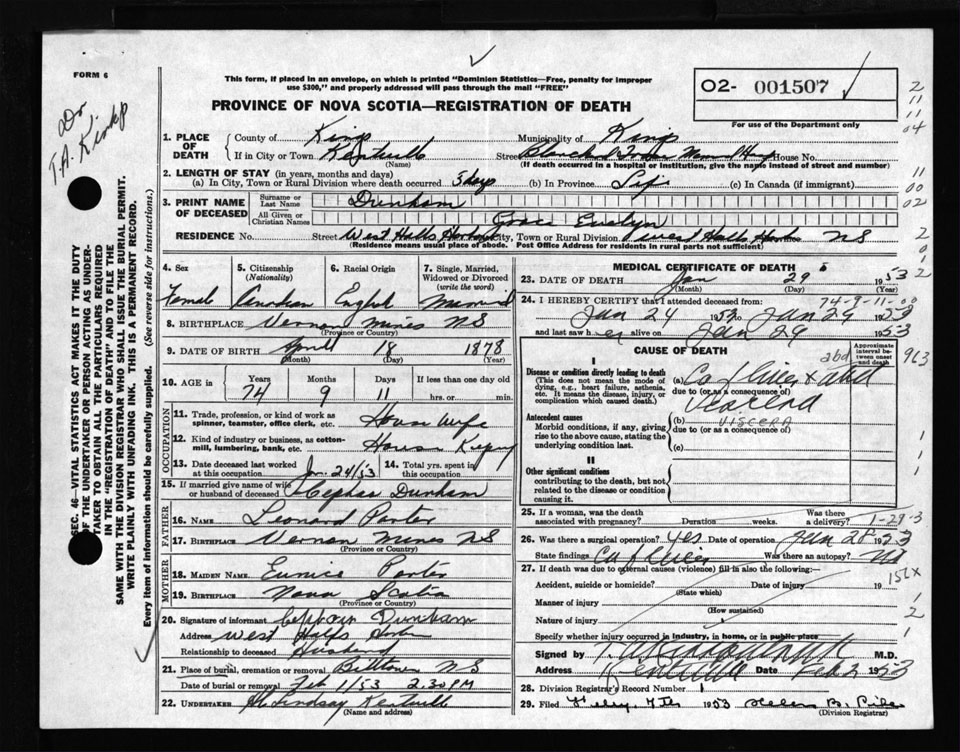 FORM 6
This form, if placed in an envelope, on which is printed "Dominion Statistics—Free, penalty for improper
use $300," and properly addressed will pass through the mail "FREE"
PROVINCE OF NOVA SCOTIA—REGISTRATION OF DEATH
O2- 001507
For use of the Department only
Dr.
T.A. Kirkp
SEC. 46—VITAL STATISTICS ACT MAKES IT THE DUTY
OF THE UNDERTAKER OR PERSON ACTING AS UNDER-
TAKER TO OBTAIN ALL THE PARTICULARS REQUIRED
IN THE "REGISTRATION OF DEATH" AND TO FILE THE
SAME WITH THE DIVISION REGISTRAR WHO SHALL ISSUE THE BURIAL PERMIT.
WRITE PLAINLY WITH UNFADING INK. THIS IS A PERMANENT RECORD.
Every item of information should be carefully supplied. (See reverse side for instructions.)
1. PLACE OF DEATH County of Kings Municipality of Kings
If in City or Town Kentville Street House No.
(Name) (If death occurred in a hospital or institution, give the name instead of street and number)
2. LENGTH OF STAY (in years, months and days)
(a) In City, Town or Rural Division where death occurred 3 days (b) In Province Life (c) In Canada (if immigrant)
3. PRINT NAME OF DECEASED Surname or Last Name Dunham
All Given or Christian Names Grace Evelyn
RESIDENCE No. Street West Halls Harbor City, Town or Rural Division West Halls Harbor NS
(Residence means usual place of abode. Post Office Address for residents in rural parts not sufficient)
4. Sex 5. Citizenship (Nationality) 6. Racial Origin 7. Single, Married, Widowed or Divorced (write the word)
Female Canadian English Married
8. BIRTHPLACE Vernon Mines NS
(Province or Country)
9. DATE OF BIRTH April 18 1878
(Month) (Day) (Year)
10. AGE in Years Months Days If less than one day old
74 9 11 hrs. or min.
OCCUPATION
11. Trade, profession, or kind of work as spinner, teamster, office clerk, etc. House Wife
12. Kind of industry or business, as cotton-mill, lumbering, bank, etc. House
13. Date deceased last worked at this occupation Jan 24/53 14. Total yrs. spent in this occupation
15. If married give name of wife or husband of deceased Cephas Dunham
FATHER
16. NAME Leonard Porter
17. BIRTHPLACE Vernon Mines NS
(Province or Country)
MOTHER
18. MAIDEN NAME Eunice Porter
19. BIRTHPLACE Nova Scotia
(Province or Country)
20. Signature of informant Dunham
Address West Halls Harbor
Relationship to deceased Husband
21. Place of burial, cremation or removal Billtown NS
Date of burial or removal Feb 1/53 2.30 PM
22. UNDERTAKER Lindsay Kentville
(Name and address)
MEDICAL CERTIFICATE OF DEATH
23. DATE OF DEATH Jan 29 1953
(Month) (Day) (Year)
74-9-11-00
24. I HEREBY CERTIFY that I attended deceased from:
Jan 24 1953 to Jan 29 1953
and last saw her alive on Jan 29 1953
CAUSE OF DEATH
Approximate interval between onset and death
I
Disease or condition directly leading to death
(This does not mean the mode of dying, e.g., heart failure, asthenia, etc. It means the disease, injury, or complication which caused death.)
(a) Ca of Liver & abd
due to (or as a consequence of)
Antecedent causes
Morbid conditions, if any, giving rise to the above cause, stating the underlying condition last.
(b) VISCERA
due to (or as a consequence of)
(c)
II
Other significant conditions
contributing to the death, but not related to the disease or condition causing it.
25. If a woman, was the death associated with pregnancy? Duration weeks. Was there a delivery?
26. Was there a surgical operation? Yes Date of operation Jan 28 1953
State findings Ca of Liver Was there an autopsy? No
27. If death was due to external causes (violence) fill in also the following:
Accident, suicide or homicide? Date of injury 19
(State which)
Manner of injury
(How sustained)
Nature of injury
Specify whether injury occurred in industry, in home, or in public place
Signed by M.D.
Address Kentville Date Feb 2 1953
28. Division Registrar's Record Number 1
29. Filed 1953 Helen B.
(Division Registrar)